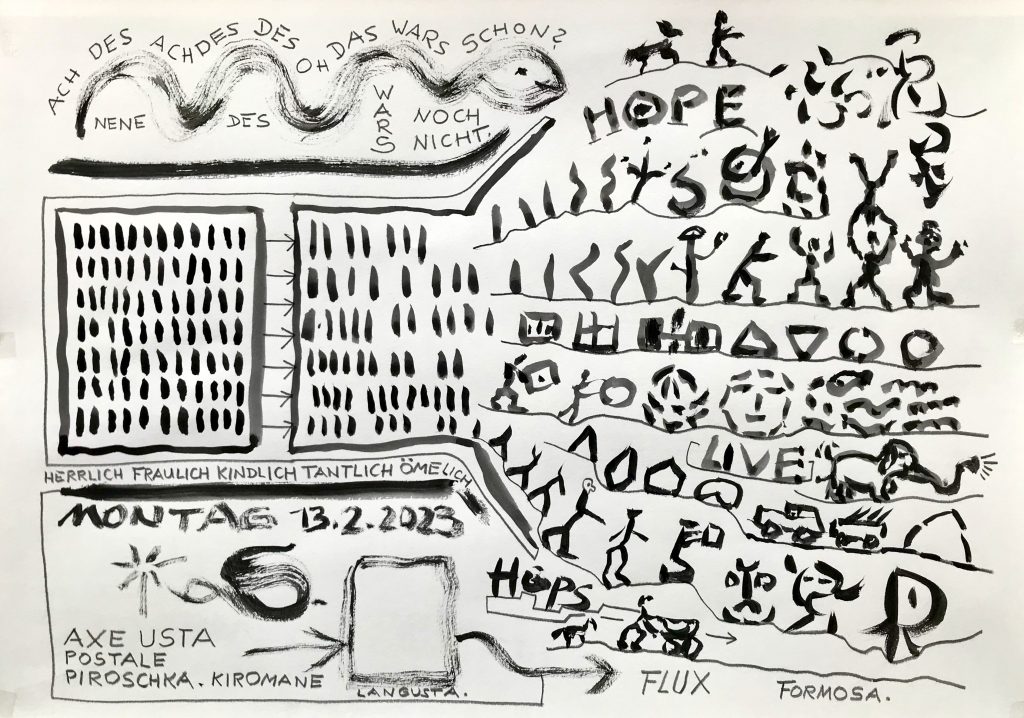 ACH DES ACHDES DES OH DAS WARS SCHON?
NENE DES WARS NOCH NICHT.
HOPE
HERRLICH FRAULICH KINDLICH TANTLICH ÖMELICH
LIVE
MONTAG 13.2.2023
HOPS
AXE USTA
POSTALE
PIROSCHKA. KIROMANE
LANGUSTA.
FLUX
FORMOSA.
R